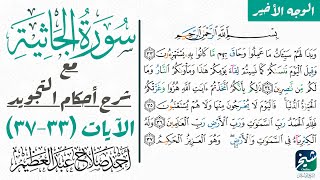 الوجه الأخير
سورة الجاثية
مع
شرح أحكام التجويد
الآيات (٣٣-٣٧)
أحمد صلاح عبد العظيم
بسم الله الرحمن الرحيم
وبدا لهم سيئات ما عملوا وحاق بهم ما كانوا به يستهزءون (٣٣)
وقيل اليوم ننسىكم كما نسيتم لقاء يومكم هذا ومأوىكم النار وما
لكم من نصرين (٣٤) ذلكم بأنكم اتخذتم ءايت الله هزوا وغرتكم
الحيوة الدنيا فاليوم لا يخرجون منها ولا هم يستعتبون (٣٥)
فلله الحمد رب السموت ورب الأرض رب العلمين (٣٦) وله
الكبرياء في السموت والأرض وهو العزيز الحكيم (٣٧)